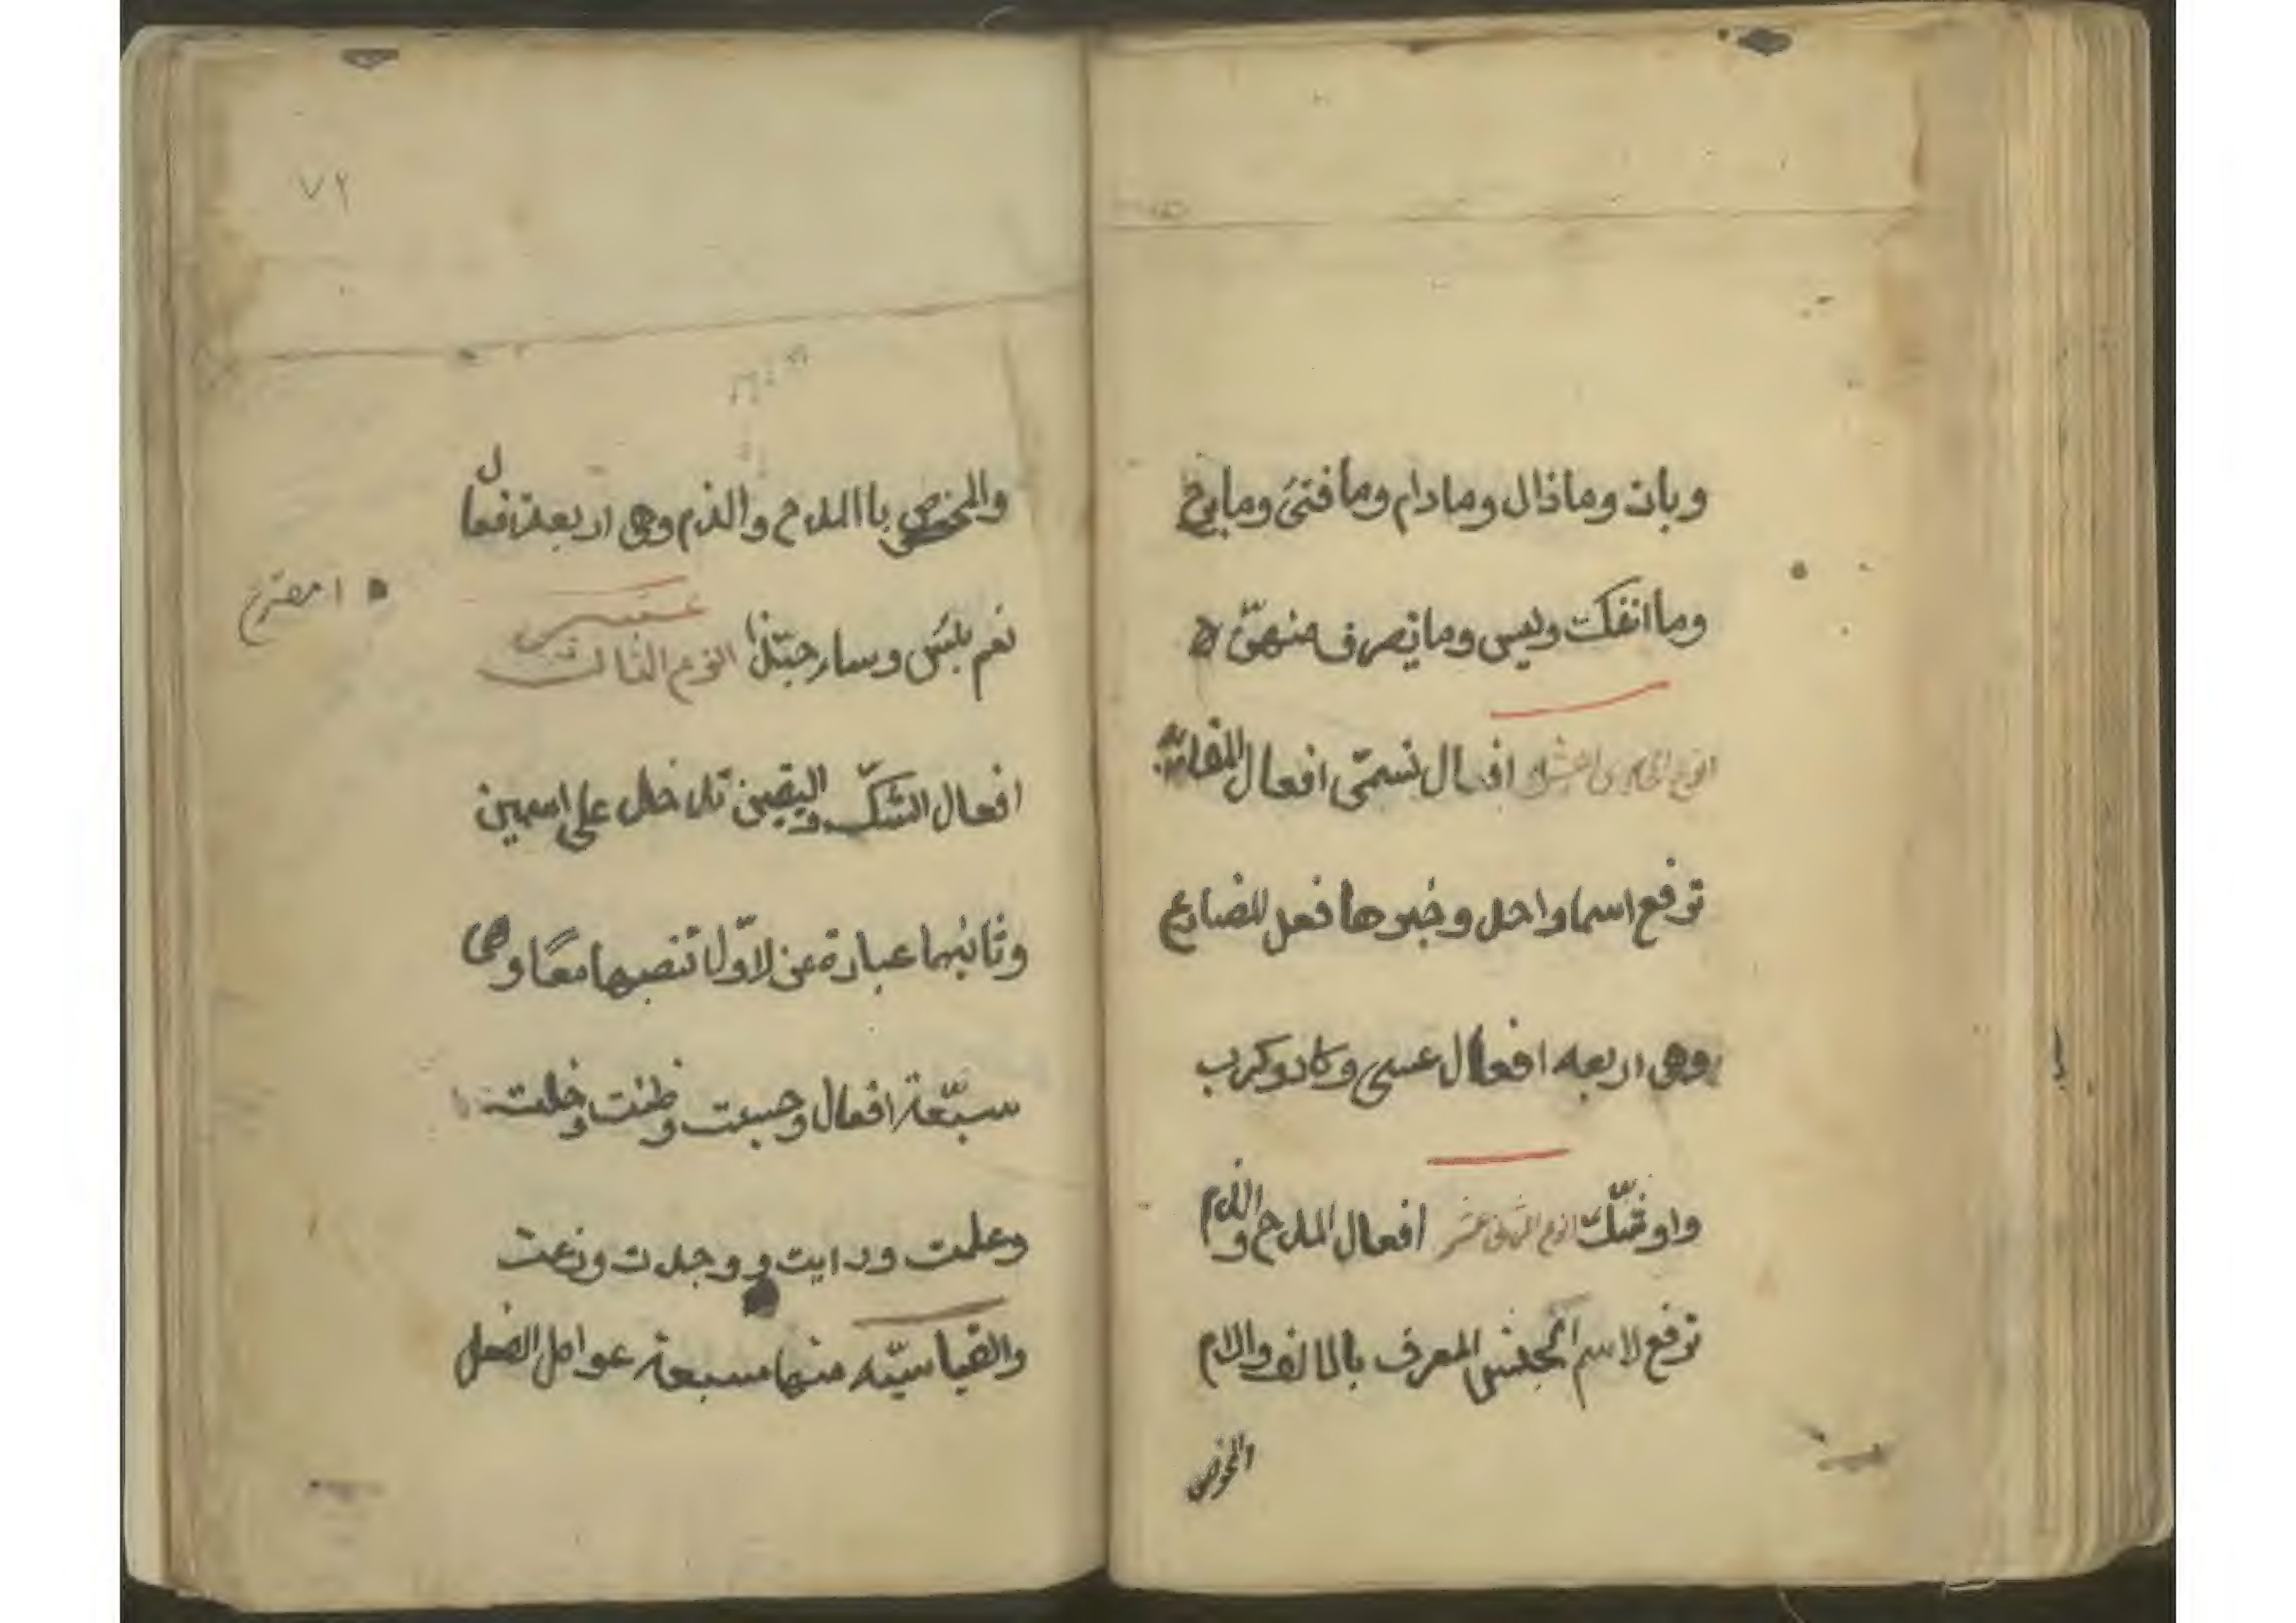 وبات وماذال ومادام ومافتئ ومابرح
وماانفكت وليس ومايصرف منهنّ
النوع الحادى العشر افعال تسمّى افعال المقاربة
ترفع اسما واحل وخبرها فعل المضارع
وهى اربعه افعال عسى وكاد وكرب
واوشك النوع الثانى عشر افعال المدح والذم
ترفع الاسم الجنس المعرف بالالف والام
المخصوص
٧٢
والمخصوص باالمدح والذم وهى اربعة افعال
نعم بئس وساء حبّذا النوع الثالث عشر
افعال الشكّ واليقين تدخل على اسمين
وثانيهما عبارة عن لاوّل تنصبهما معًا وهى
سبّعة افعال وحسبت وظنت وخلت
وعلمت ورايت ووجدت وزعت
والقياسيّه منها سبعة عوامل الفعل